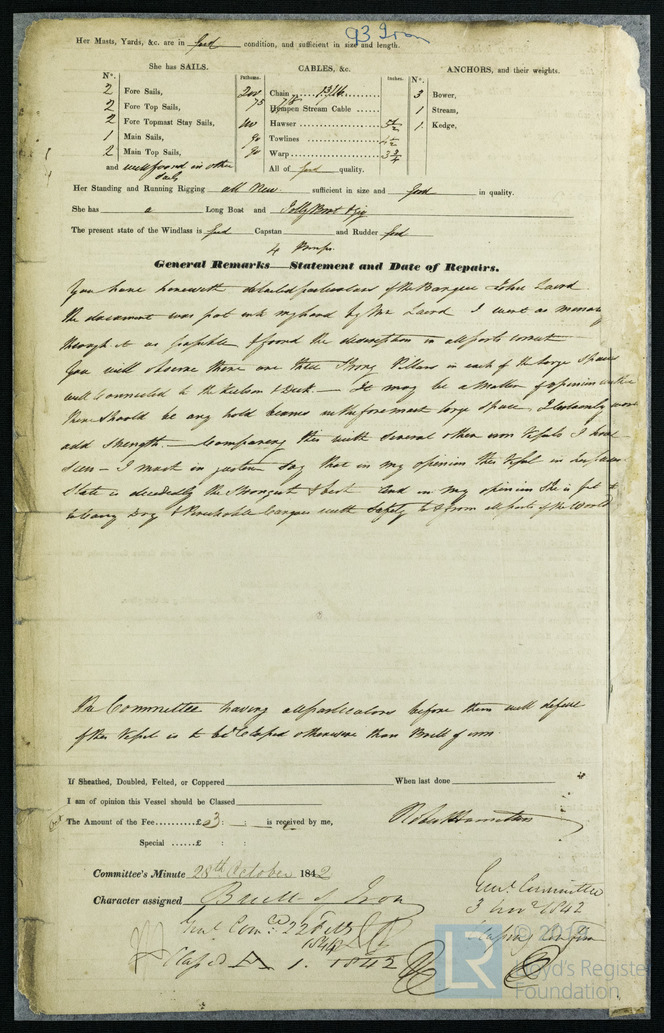 93 Iron
Her Masts, Yards, &c. are in good condition, and sufficient in size and length.
She has SAILS.
CABLES, &c.
ANCHORS, and their weights.
N°.
Fathoms.
Inches.
N°.
2 Fore Sails,
2 Fore Top Sails,
2 Fore Topmast Stay Sails,
1 Main Sails,
2 Main Top Sails,
and well found in other
Chain
75
Hempen Stream Cable
Hawser 5½
Towlines 4½
90 Warp
All of good quality.
3 Bower,
1 Stream,
1. Kedge,
Her Standing and Running Rigging all New. sufficient in size and good in quality.
She has a Long Boat and Jolly Boat & Gig
The present state of the Windlass is good Capstan and Rudder good
4 Pumps.
General Remarks—Statement and Date of Repairs.
You have herewith detailed particulars of the Barque John Laird.
the document was put into my hand by Mr Laird I went as minutely
through it as possible & found the description in all parts correct
You will observe there are three Strong Pillars in each of the large Spaces
well Connected to the Keelson & Deck. — It may be a Matter of opinion whether
there Should be any hold beams in the foremost large space, I certainly would
add strength. — Comparing this with several other iron Vessels I have
seen — I must in justice Say that in my opinion this Vessel in her present
State is decidedly the Strongest & best and in my opinion She is fit to
to Carry Dry & Perishable Cargoes with Safety to & from all parts of the World
The Committee having all particulars before them will
if this Vessel is to be Classed otherwise than Built of iron.
If Sheathed, Doubled, Felted, or Coppered When last done
I am of opinion this Vessel should be Classed
The Amount of the Fee.........£ 3 : : is received by me,
Special ......£ : :
Committee's Minute 28th October 1842
Genl. Committee
3 Novr 1842
Character assigned Built of Iron
Genl Comee 22 Feby
1844
Classed A 1. 1842
LR
© 20
Lloyd's Register
Foundation